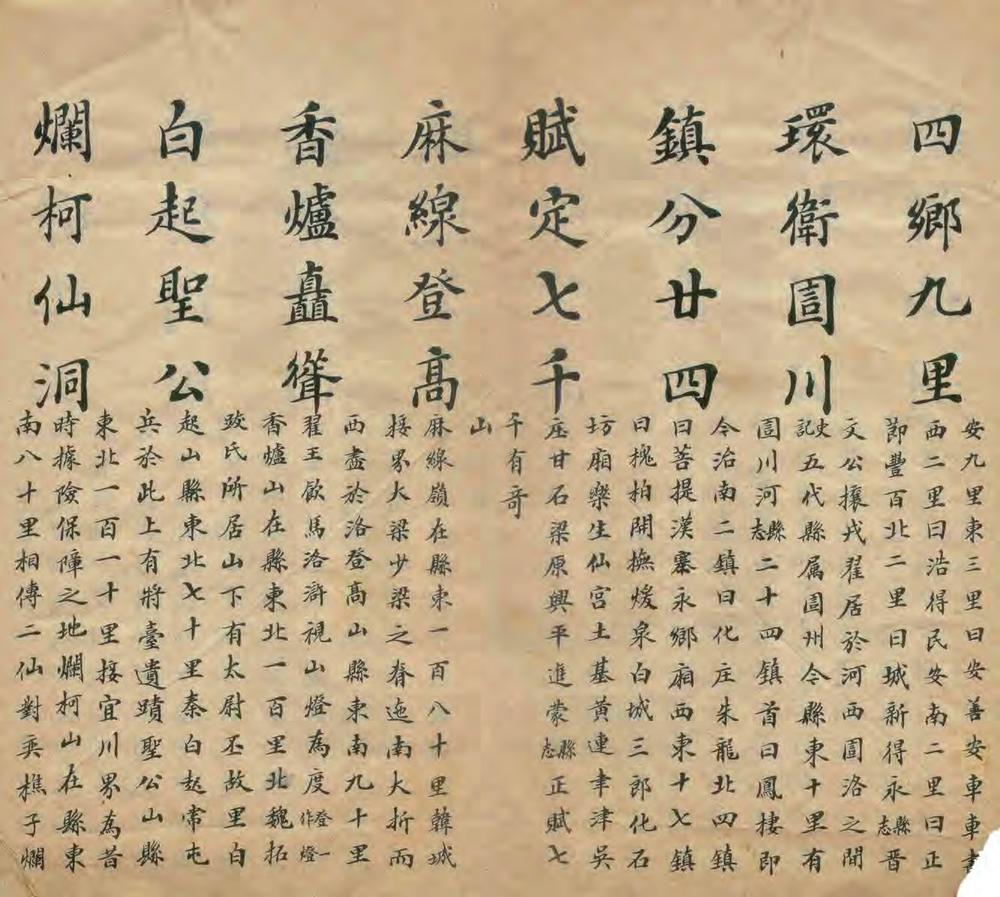 四鄉九里
環衛圁川
鎮分廿四
賦定七千
安九里東三里曰安善安車車書
西二里曰浩得民安南二里曰正
節豐百北二里曰城新得永縣志晉
文公攘戎翟居於河西圁洛之間
史記五代縣属圁州今縣東十里有
圁川河縣志二十四鎮首曰鳳棲即
今治南二鎮曰化庄朱龍北四鎮
曰菩提漢寨永鄉廂西東十七鎮
曰槐柏開撫煖泉白城三郎化石
坊廂樂生仙宮土基黃連聿津吳
庄甘石梁原興平進蒙縣志正賦七
千有奇
山
麻線登高
香爐矗聳
白起聖公
爛柯仙洞
麻線嶺在縣東一百八十里韓城
接界大梁少梁之脊迤南大折而
西盡於洛登高山縣東南九十里
翟王飲馬洛滸視山燈為度登一作燈
香爐山在縣東北一百里北魏拓
跋氏所居山下有太尉丕故里白
起山縣東北七十里秦白起常屯
兵於此上有將臺遺蹟聖公山縣
東北一百一十里接宜川界為昔
時據險保障之地爛柯山在縣東
南八十里相傳二仙對奕樵子爛